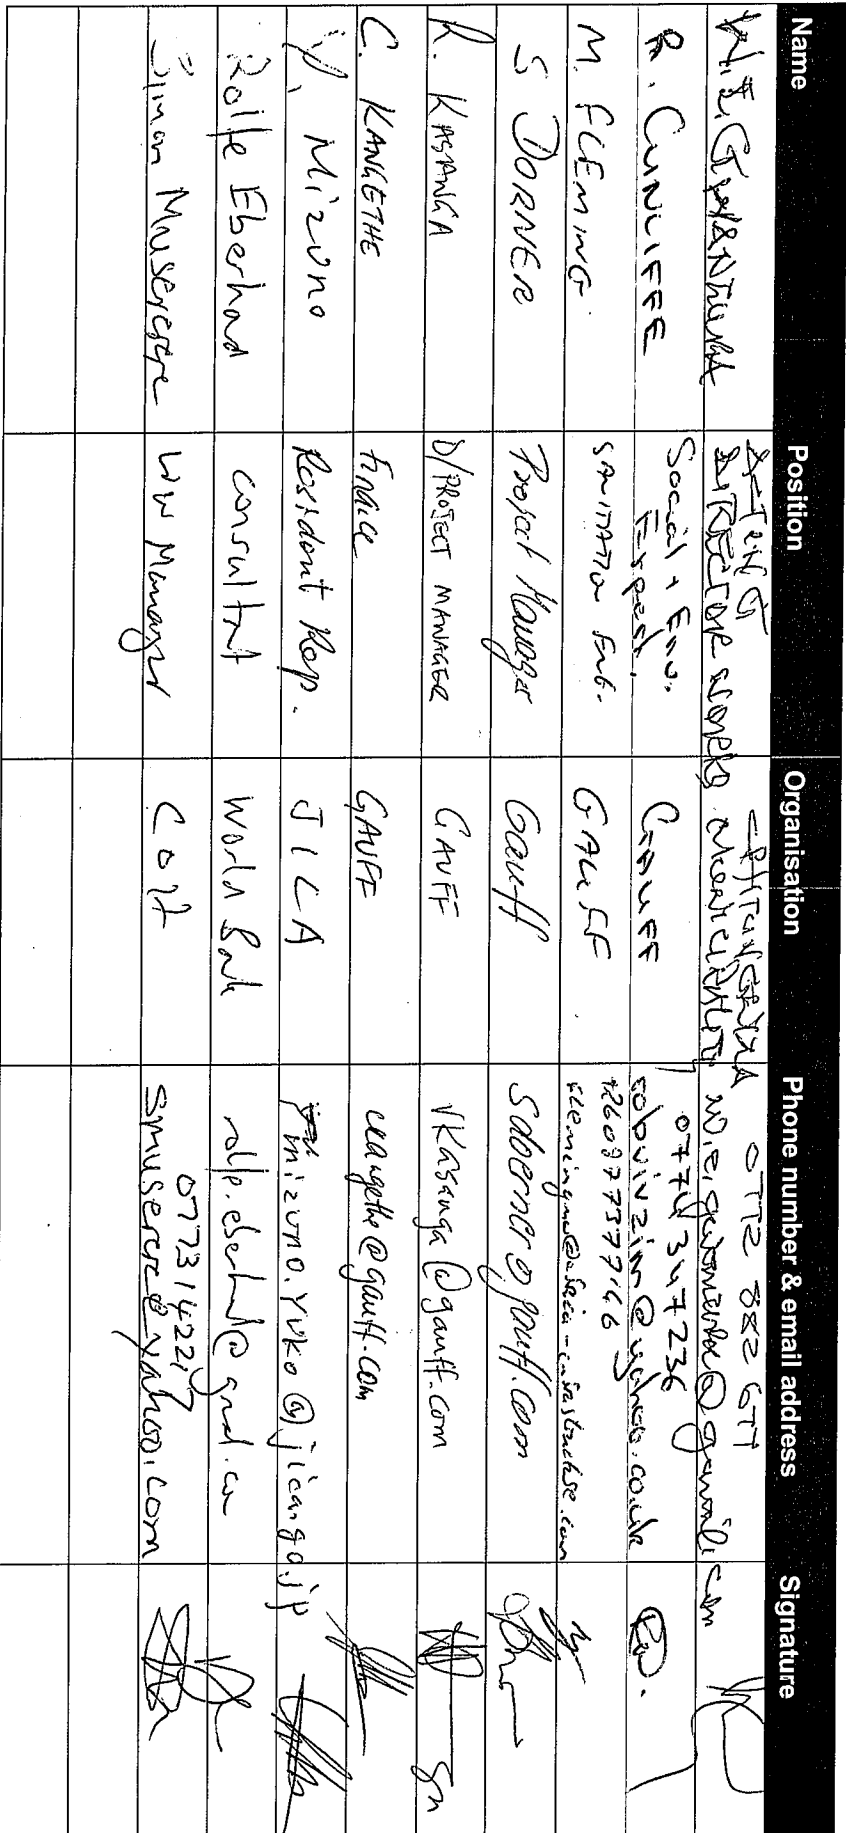 Name Position Organisation Phone number & email address Signature
W.E. ACTING DIRECTOR WORKS CHITUNGWIZA MUNICIPALITY 0772 882 677
R. CUNLIFFE Social + Env. Expert. GAUFF 0774 347236 robinzim@yahoo.co.uk
M. FLEMING SANITATION GAUFF
S DORNER Project Manager Gauff Sdoerner@gauff.com
R. KASANGA D/PROJECT MANAGER GAUFF VKasanga@gauff.com
C. KANGETHE Finance GAUFF ckangethe@gauff.com
Y. Mizuno Resident Rep. JICA mizuno.yuko@jica.go.jp
Rolfe Eberhard consultant World Bank
Simon Muserere WW Manager CoH 0773142217 smuserere@yahoo.com